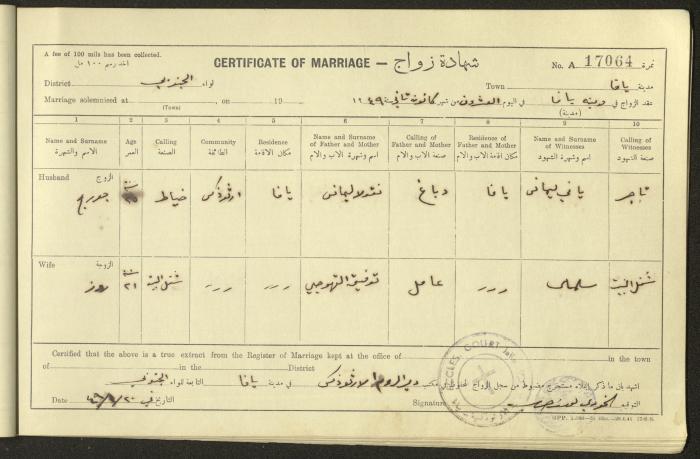 A fee of 100 mils has been collected.
اخذ رسم ١٠٠ مل
CERTIFICATE OF MARRIAGE – شهادة زواج
No. A 17064 نمرة
District لواء الجنوبي
Town مدينة يافا
Marriage solemnized at , on 19
(Town)
عقد الزواج في مدينة يافا في اليوم العشرون من شهر كانون ثاني سنة ١٩٤٩
(مدينة)
1 2 3 4 5 6 7 8 9 10
Name and Surname Age Calling Community Residence Name and Surname of Father and Mother Calling of Father and Mother Residence of Father and Mother Name and Surname of Witnesses Calling of Witnesses
الاسم والشهرة العمر الصنعة الطائفة مكان الاقامة اسم وشهرة الاب والام صنعة الاب والام مكان اقامة الاب والام اسم وشهرة الشهود صنعة الشهود
Husband الزوج
جورج سنة خياط ارثوذكس يافا نقولا دباغ يافا تاجر
Wife الزوجة
روز سنة ٢١ شغل البيت توفيق عامل شغل البيت
Certified that the above is a true extract from the Register of Marriage kept at the office of in the town
of in the District
اشهد بان ما ذكر اعلاه مستخرج مضبوط من سجل الزواج المحفوظ في مكتب دير الروم الارثوذكس في مدينة يافا التابعة للواء الجنوبي
Date التاريخ في ٢٠/١/٤٩
Signature التوقيع الخوري
ECCLES. COURT